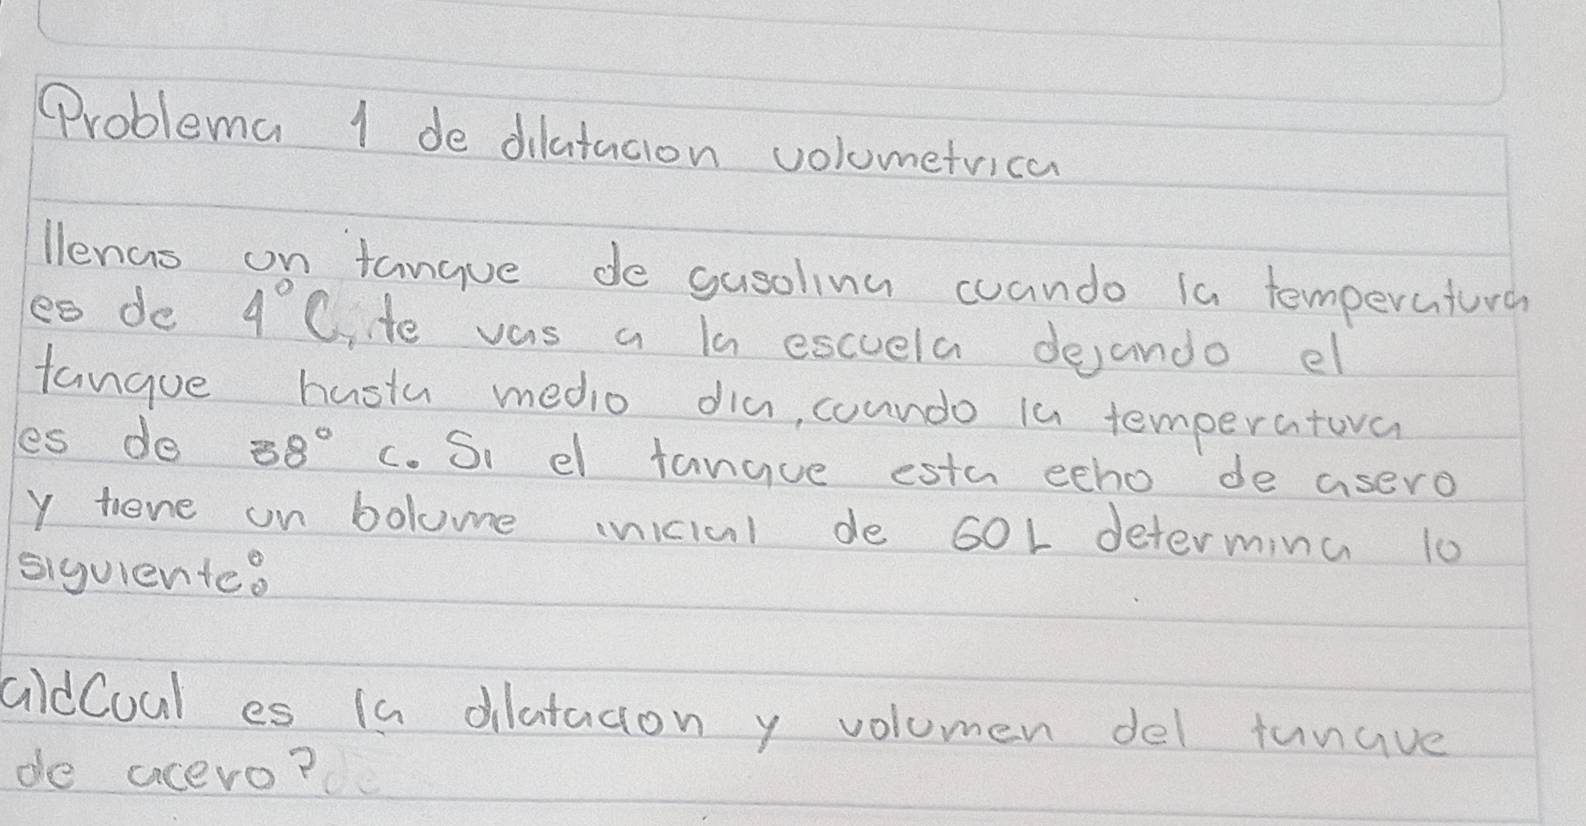 Problema 1 de dilatacion volumetrica
llenas un tanque de gasolina cuando la temperatura
es de 4°C, te vas a la escuela dejando el
tanque hasta medio dia, cuando la temperatura
es de 38° c. Si el tanque esta echo de asero
y tiene un bolume inicial de 60L determina lo
siguiente:
a)¿Cual es la dilatacion y volumen del tanque
de acero?